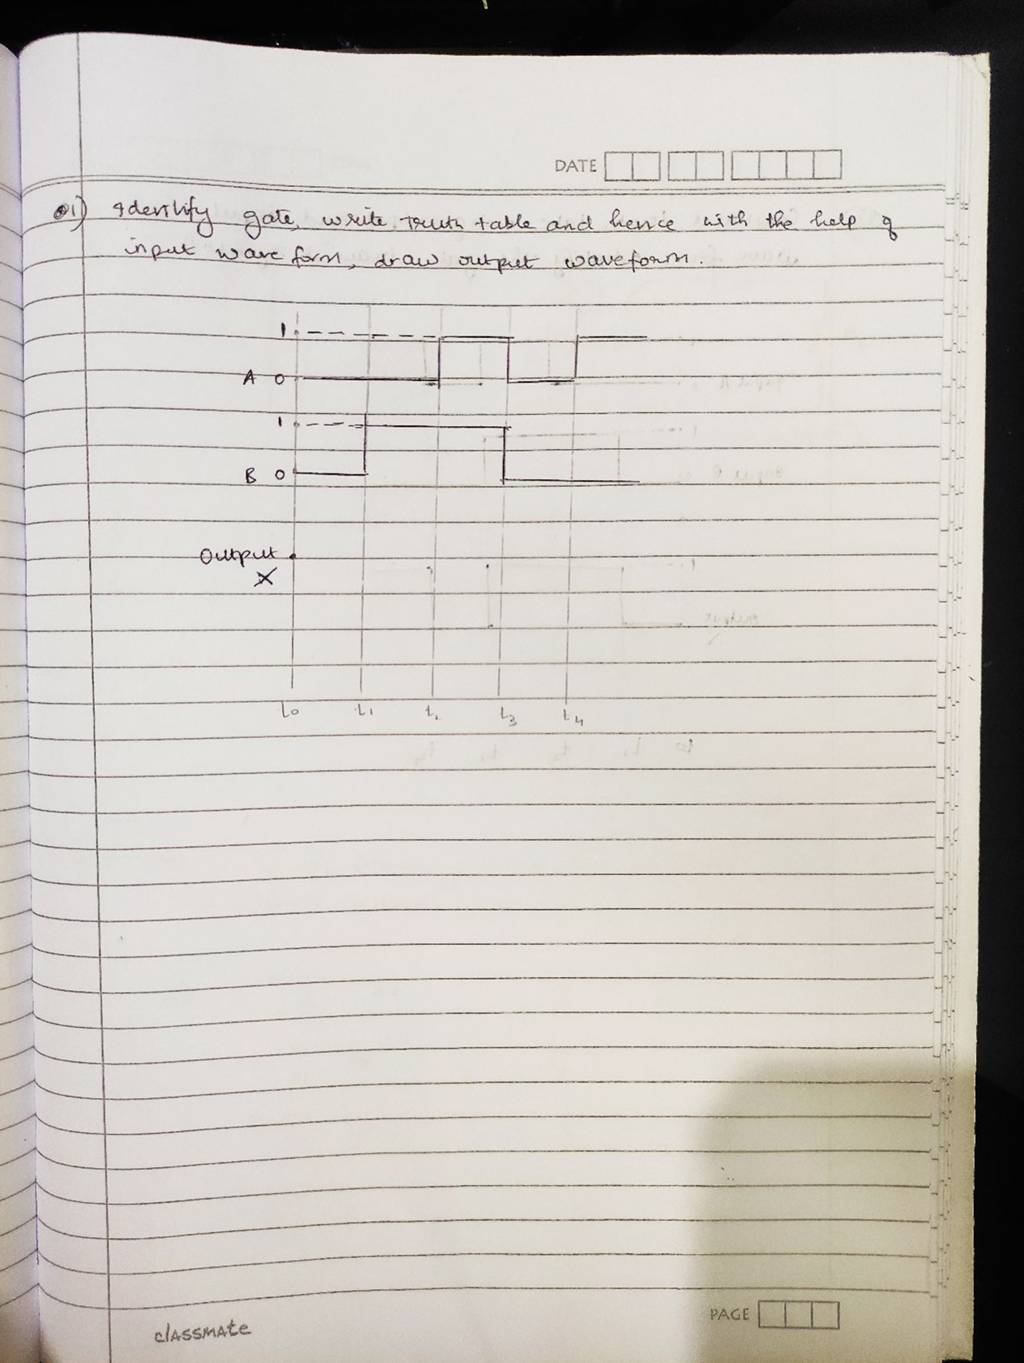 DATE
Q1) Identify gate, write Truth table and hence with the help of
input wave form, draw output waveform.
1
A 0
1
B 0
Output
X
t0 t1 t2 t3 t4
classmate
PAGE